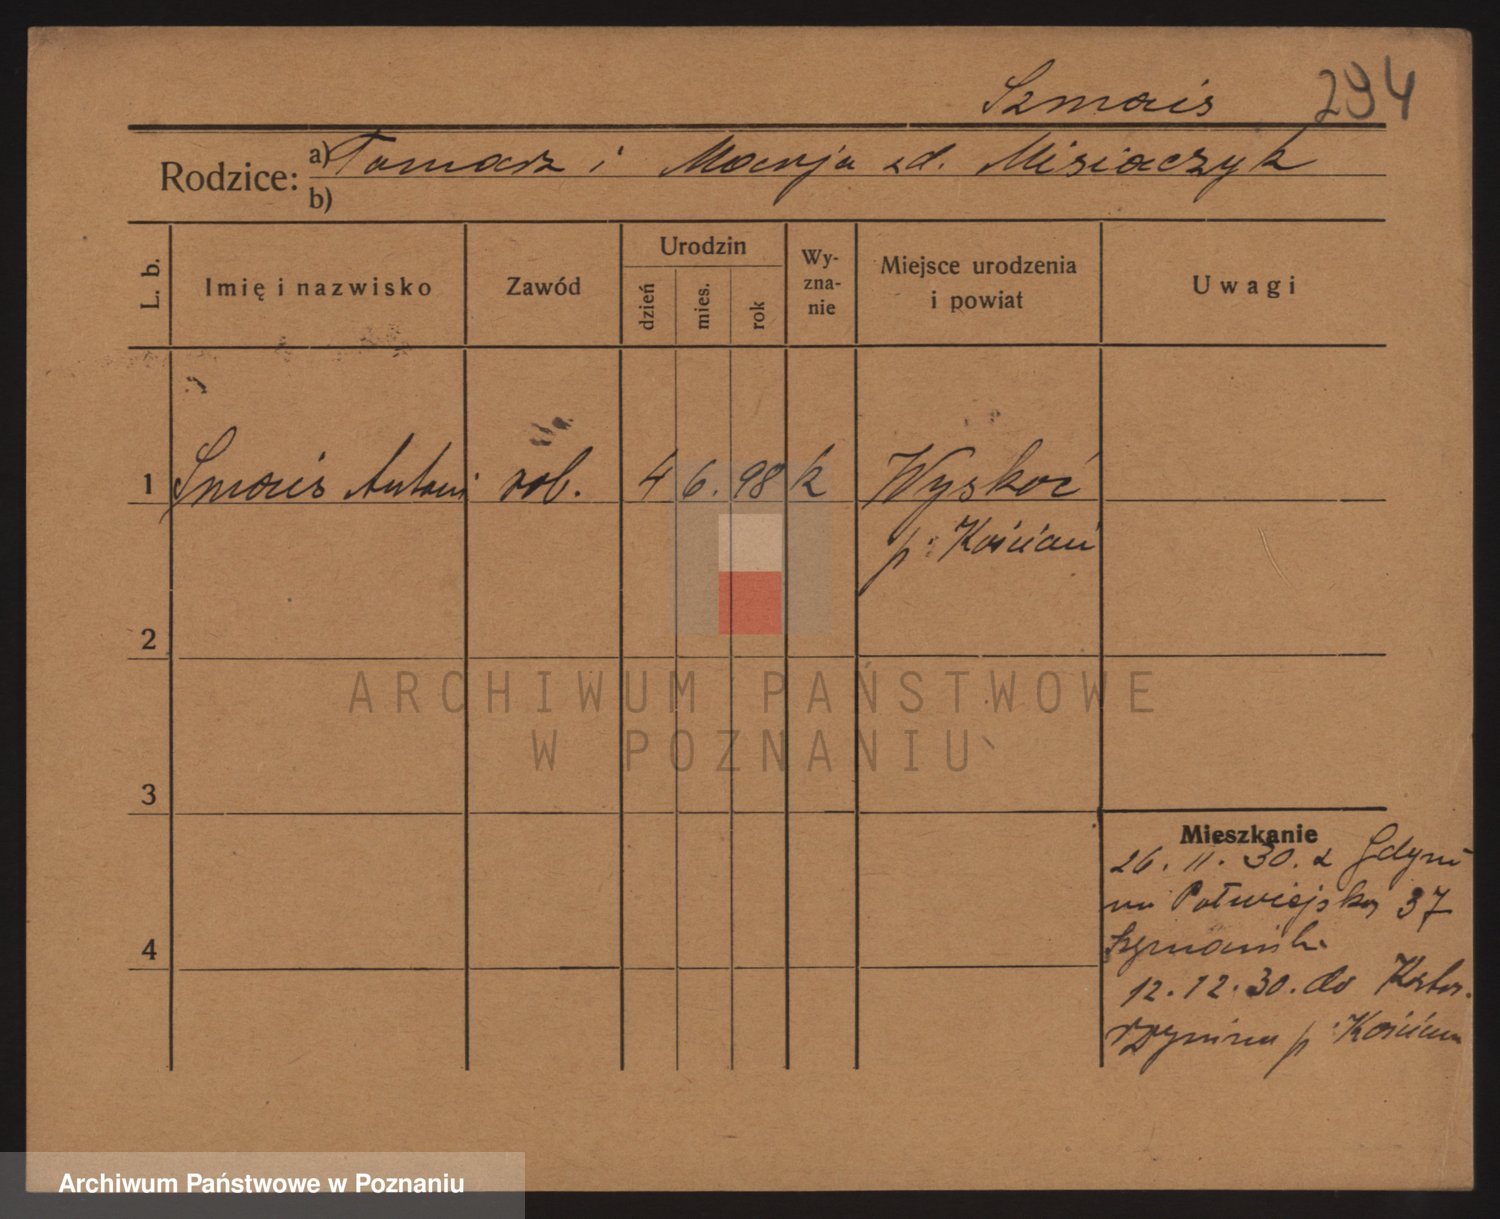 Szmais 294
Rodzice: a) Tomasz i Marja zd. Misiaczyk
b)
L. b. Imię i nazwisko Zawód Urodzin dzień mies. rok Wyzna-nie Miejsce urodzenia i powiat Uwagi
1 Smais Antoni rob. 4 6. 98 k Wyskoć
p. Kościan
2
ARCHIWUM PAŃSTWOWE
W POZNANIU
3
Mieszkanie
26. 11. 30. z Gdyni
na Półwiejską 37
12. 12. 30. do
p. Kościan
4
Archiwum Państwowe w Poznaniu